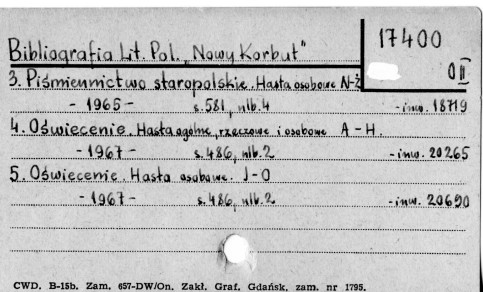 17400
Bibliografia Lit. Pol. „Nowy Korbut"
0 II
3. Piśmiennictwo staropolskie. Hasła osobowe N-Ż
- 1965 - s. 581, nlb. 4 - inw. 18719
4. Oświecenie. Hasła ogólne, rzeczowe i osobowe A - H.
- 1967 - s. 486, nlb. 2 - inw. 20265
5. Oświecenie. Hasła osobowe. J - O
- 1967 - s. 486, nlb. 2 - inw. 20690
CWD. B-15b. Zam. 657-DW/On. Zakł. Graf. Gdańsk, zam. nr 1795.